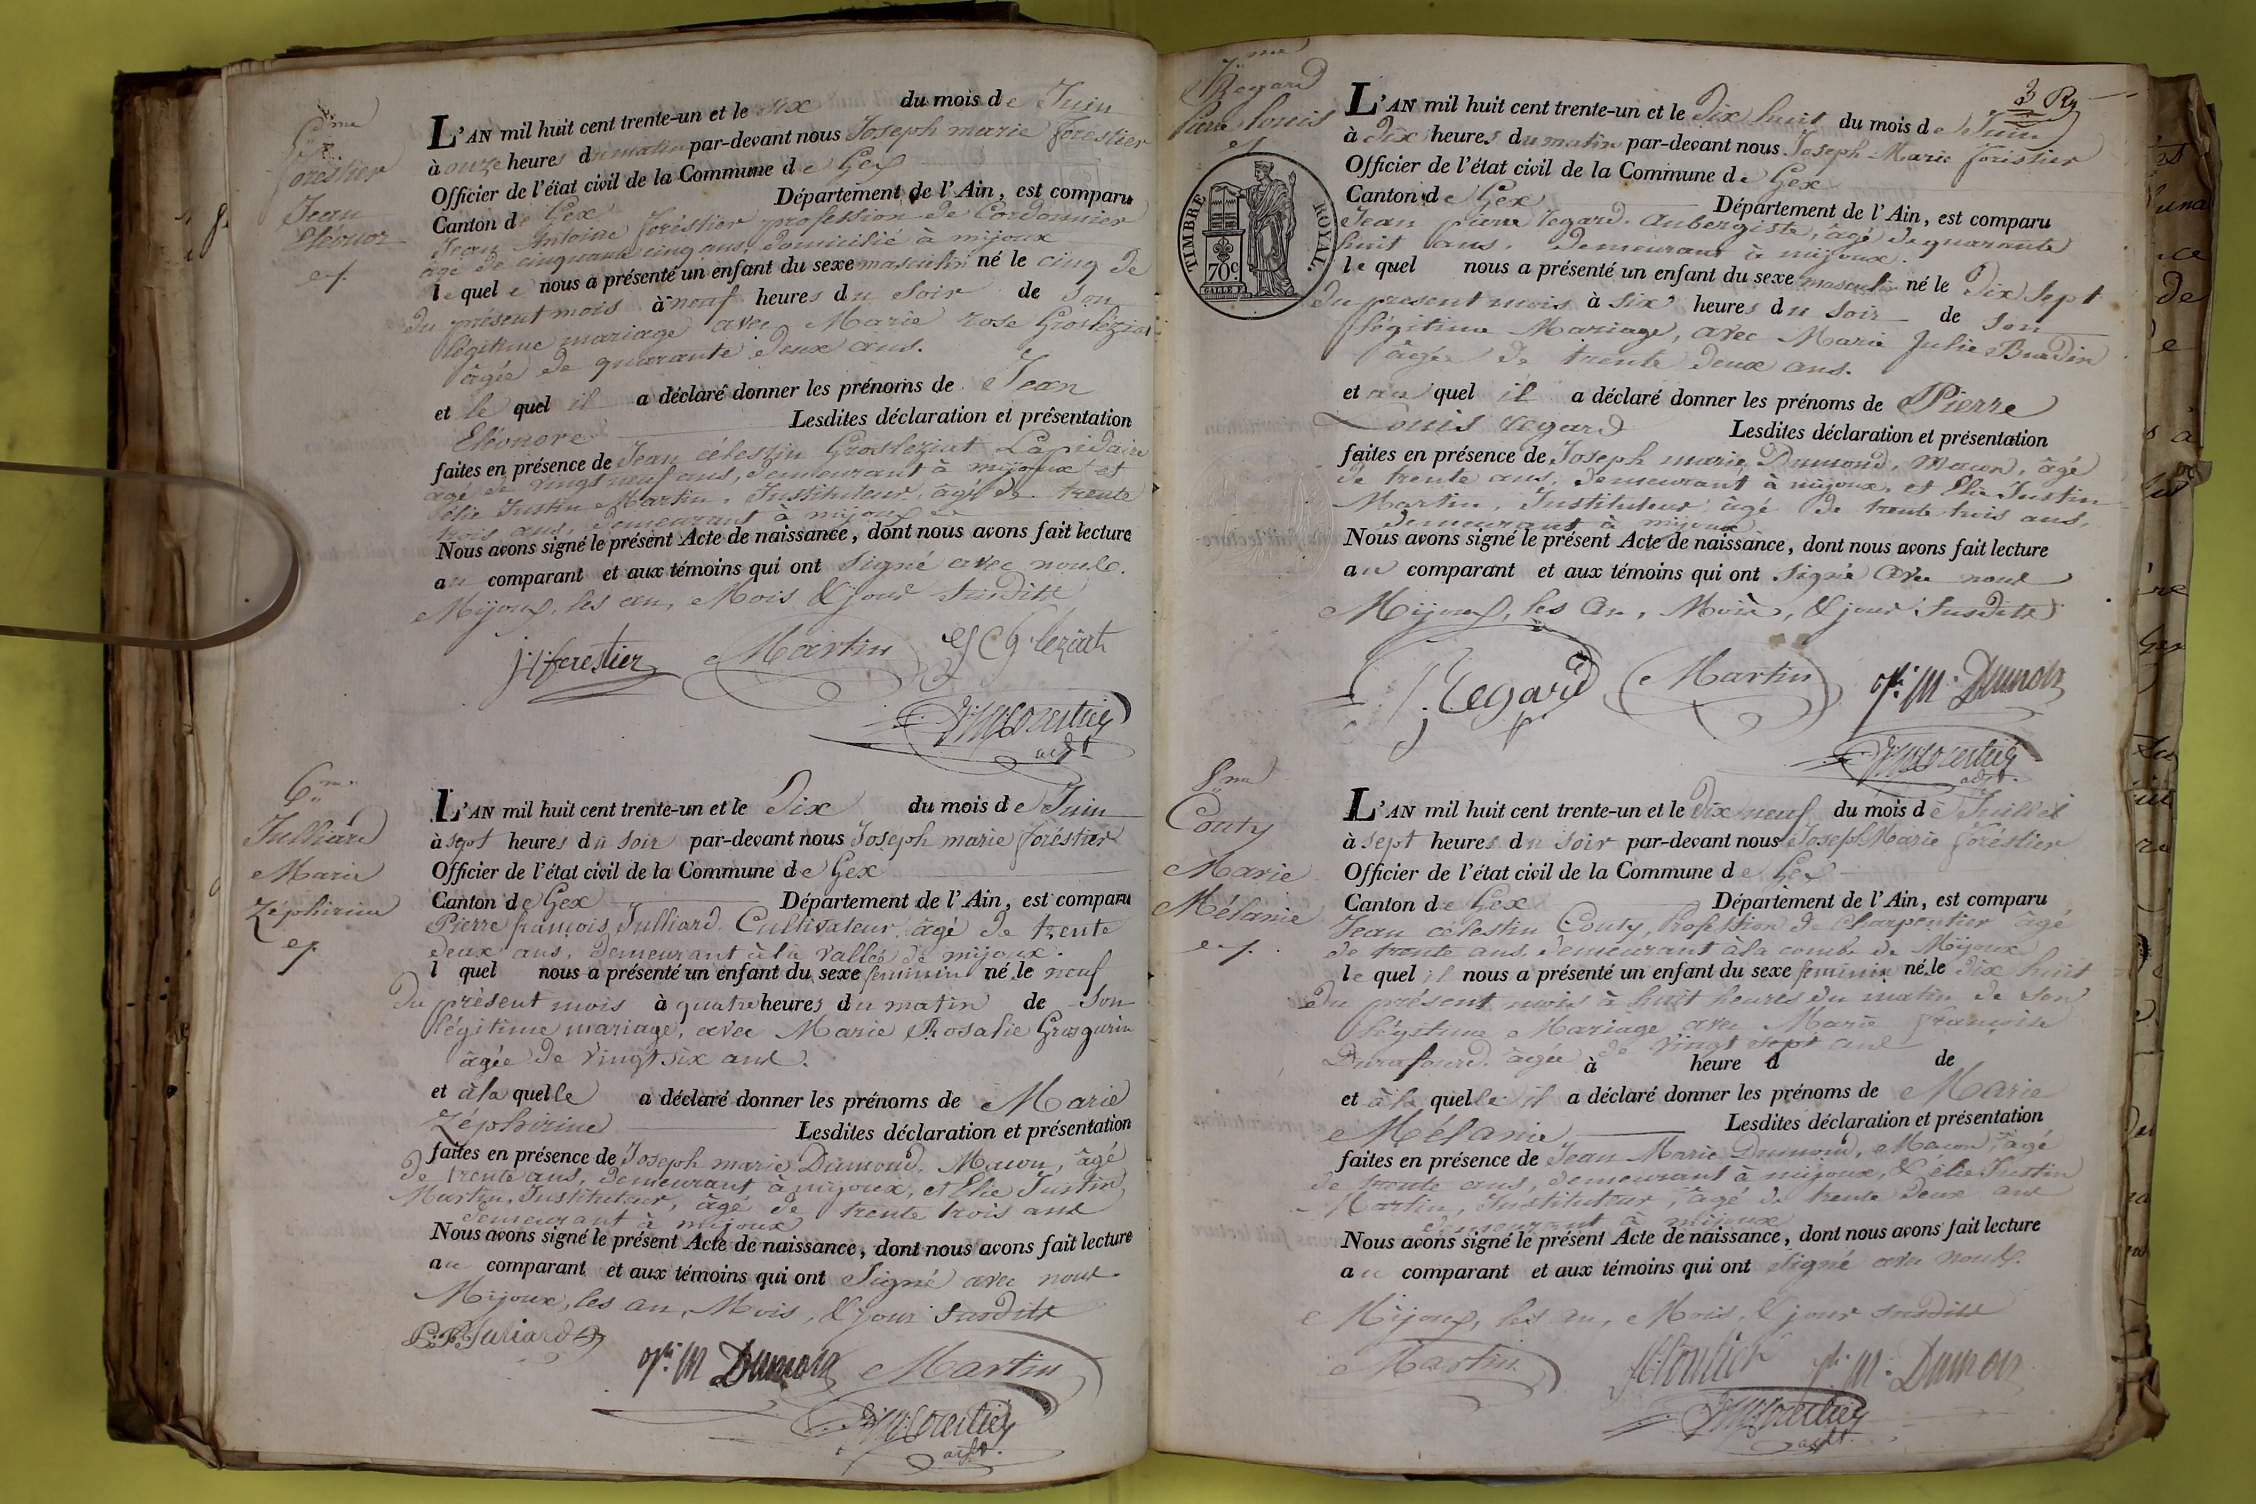 5me
forestier
Jean
Eléonor
ef.
L'AN mil huit cent trente-un et le six du mois de Juin
à onze heures du matin par-devant nous Joseph marie forestier
Officier de l'état civil de la Commune de Gex
Canton de Gex Département de l'Ain, est comparu
Jean Antoine forestier profession de Cordonnier
âgé de cinquante cinq ans domicilié à mijoux
lequel nous a présenté un enfant du sexe masculin né le cinq de
du présent mois à neuf heures du soir de son
légitime mariage avec Marie rose Grosléziat
âgée de quarante deux ans.
et le quel il a déclaré donner les prénoms de Jean
Eléonore Lesdites déclaration et présentation
faites en présence de Jean célestin Grosleziat Lapidaire
âgé de vingt neuf ans, demeurant à mijoux et
élie Justin Martin, Instituteur, âgé de trente
trois ans, demeurant à mijoux
Nous avons signé le présent Acte de naissance, dont nous avons fait lecture
au comparant et aux témoins qui ont signé avec nous.
Mijoux, les an, Mois & jour Susdits
j. forestier Martin J C G. leziat
J M forestier
adjt
6me
Julliard
Marie
Zéphirine
ef.
L'AN mil huit cent trente-un et le Dix du mois de Juin
à sept heures du soir par-devant nous Joseph marie foréstier
Officier de l'état civil de la Commune de Gex
Canton de Gex Département de l'Ain, est comparu
Pierre françois Julliard, Cultivateur, âgé de trente
deux ans, demeurant à la vallée de mijoux.
l quel nous a présenté un enfant du sexe feminin né le neuf
du présent mois à quatre heures du matin de son
légitime mariage, avec Marie Rosalie Grosgurin
âgée de vingt six ans.
et à la quelle a déclaré donner les prénoms de Marie
Zéphirine Lesdites déclaration et présentation
faites en présence de Joseph marie Dumond, Macon, âgé
de trente ans, demeurant à mijoux, et Elie Justin
Martin, Instituteur, âgé de trente trois ans
demeurant à mijoux
Nous avons signé le présent Acte de naissance, dont nous avons fait lecture
au comparant et aux témoins qui ont Signé avec nous.
Mijoux, les an, Mois, & jour susdits
P. F. Juliard
j. M Dumon Martin
J M forestier
adjt.
7me
Regard
Pierre louis
ef
TIMBRE ROYAL.
70c.
3 Ry
L'AN mil huit cent trente-un et le Dix huit du mois de Juin
à Dix heures du matin par-devant nous Joseph Marie foristier
Officier de l'état civil de la Commune de Gex
Canton de Gex Département de l'Ain, est comparu
Jean pierre regard. aubergiste, âgé de quarante
huit ans. Demeurant à mijoux.
le quel nous a présenté un enfant du sexe masculin né le Dix Sept
du present mois à six heures du soir de son
légitime Mariage, avec Marie Julie Burdin
âgée de trente deux ans.
et au quel il a déclaré donner les prénoms de Pierre
Louis regard Lesdites déclaration et présentation
faites en présence de Joseph marie Dumond, Macon, âgé
de trente ans, demeurant à mijoux, et Elie Justin
Martin, Instituteur âgé de trente trois ans,
demeurant à mijoux
Nous avons signé le présent Acte de naissance, dont nous avons fait lecture
au comparant et aux témoins qui ont signé avec nous
Mijoux, les an, Mois, & jour Susdits
Regard Martin j. M. Dumon
J M forestier
adjt.
8me
Conty
Marie
Mélanie
ef.
L'AN mil huit cent trente-un et le dix neuf du mois de Juillet
à sept heures du soir par-devant nous Joseph Marie foréstier
Officier de l'état civil de la Commune de Gex
Canton de Gex Département de l'Ain, est comparu
Jean célestin Conty, Profession de Charpentier âgé
de trente ans demeurant à la combe de Mijoux
le quel il nous a présenté un enfant du sexe feminin né le dix huit
du présent mois à huit heures du matin de son
légitime Mariage avec Marie françoise
Durafourd, âgée de vingt sept ans
à heure d de
et à la quelle il a déclaré donner les prénoms de Marie
Mélanie Lesdites déclaration et présentation
faites en présence de Jean Marie Dumond, Macon, âgé
de trente ans, demeurant à mijoux, & élie Justin
Martin, Instituteur, âgé de trente Deux ans
demeurant à mijoux
Nous avons signé le présent Acte de naissance, dont nous avons fait lecture
au comparant et aux témoins qui ont signé avec nous.
Mijoux, les an, Mois, & jour susdits
Martin j. M. Dumon
J M forestier
adjt.